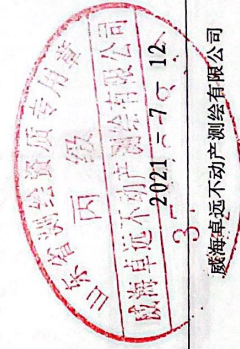 山东省测绘资质专用章
丙级
威海卓远不动产测绘有限公司
2021-7-12
威海卓远不动产测绘有限公司